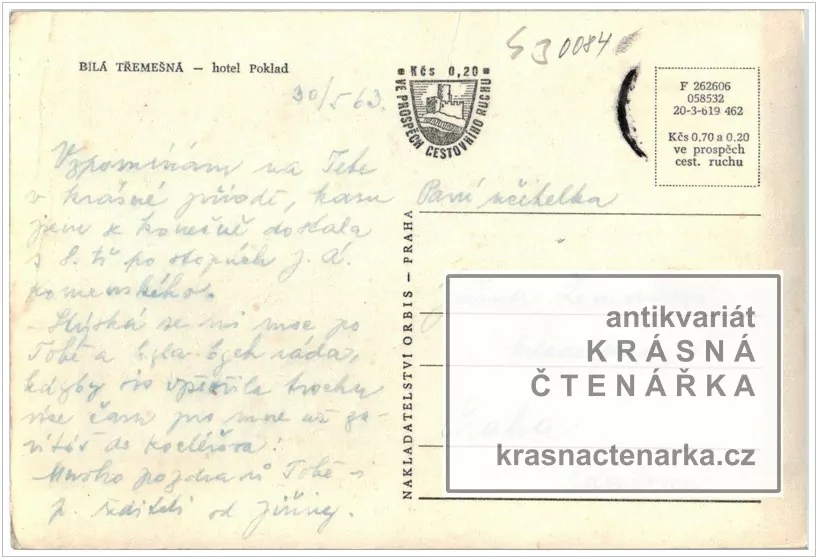 BÍLÁ TŘEMEŠNÁ — hotel Poklad
S3 0084
30/5 63.
Kčs 0,20
VE PROSPĚCH CESTOVNÍHO RUCHU
F 262606
058532
20-3-619 462
Kčs 0,70 a 0,20
ve prospěch
cest. ruchu
Vzpomínám na Tebe
v krásné přírodě, kam
jsem se konečně dostala
s 8. tř po stopách J. A.
Komenského.
Stýská se mi moc po
Tobě a byla bych ráda,
kdyby sis trochu
více času pro mne až
do
Mnoho pozdravů Tobě i
p. řediteli od Jiřiny.
NAKLADATELSTVÍ ORBIS — PRAHA
Paní učitelka
Praha
antikvariát
KRÁSNÁ
ČTENÁŘKA
krasnactenarka.cz